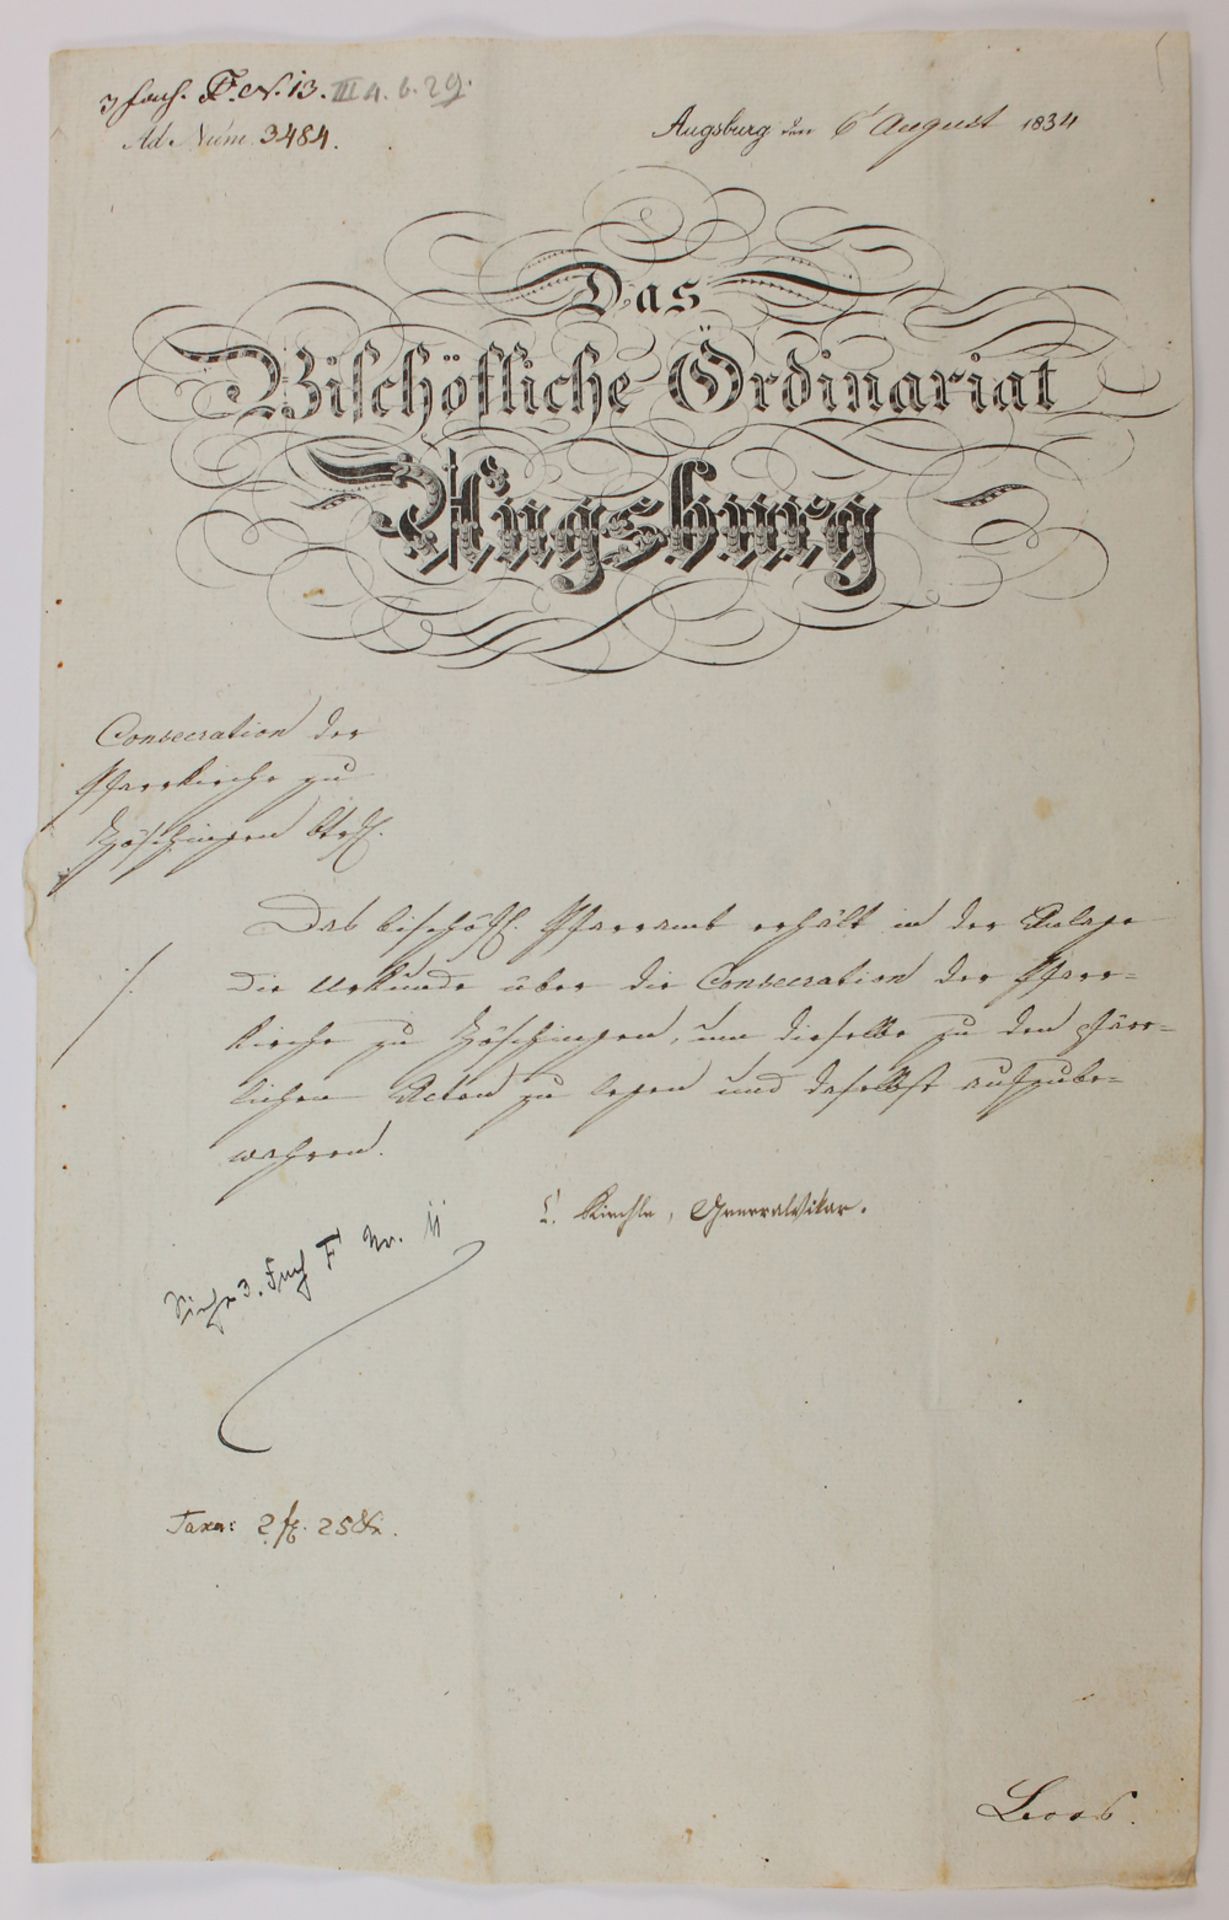 3 Fasc. F. N. 13. III 4. b. 29.
Ad Núm. 3484.
Augsburg den 6' August 1834
Das
Bischöfliche Ordinariat
Augsburg
Consecration der
Pfarrkirche zu
Zöschingen btrff.
Das bischöfl. Pfarramt erhält in der Anlage
./.
die Urkunde über die Consecration der Pfarr=
kirche zu Zöschingen, um dieselbe zu den pfarr=
lichen Acten zu legen und daselbst aufzube=
wahren.
Kirchle, GeneralVikar.
Siehe 3. Fasc F Nr. 11
Taxe: 2 fl. 25 Xr.